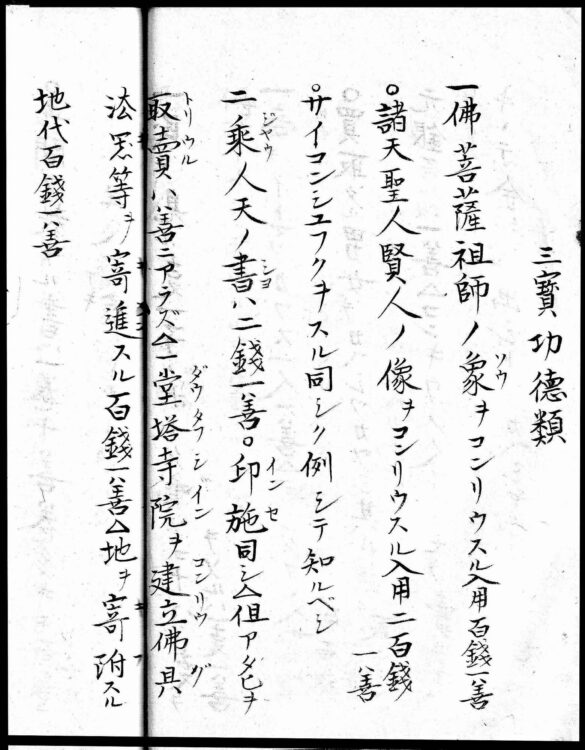 三寳功德類
一佛菩薩祖師ノ象ヲコンリウスル入用百錢一ハ善
○諸天聖人賢人ノ像ヲコンリウスル入用二百錢一ハ善
○サイコンシユフクヲスル同シク例シテ知ルベシ
二乗人天ノ書ハ二錢一ハ善○印施同シ△但アタヒヲ
取賣ハ善ニアラズ△一堂塔寺院ヲ建立佛具
法器等ヲ寄進スル百錢一ハ善△地ヲ寄附スル
地代百錢一ハ善